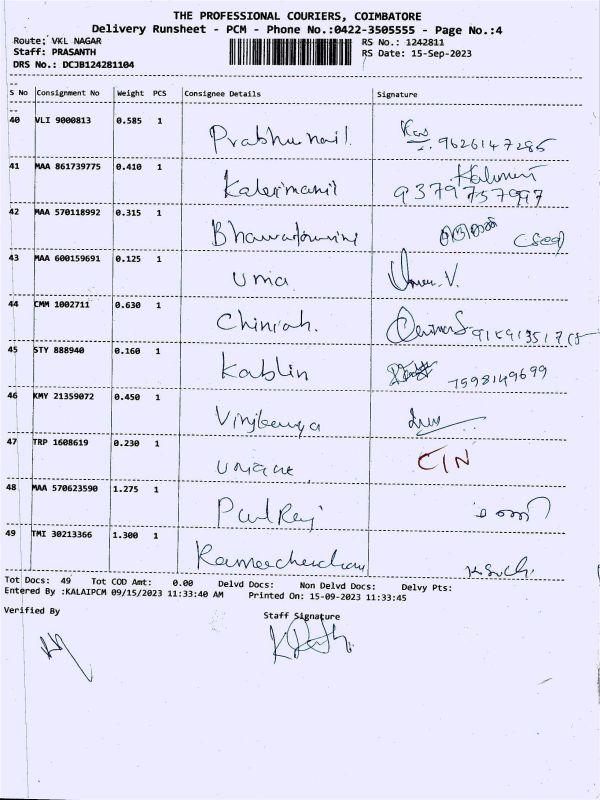 THE PROFESSIONAL COURIERS, COIMBATORE
Delivery Runsheet - PCM - Phone No.:0422-3505555 - Page No.:4
Route: VKL NAGAR RS No.: 1242811
Staff: PRASANTH RS Date: 15-Sep-2023
DRS No.: DCJB124281104
S No Consignment No Weight PCS Consignee Details Signature
40 VLI 9000813 0.585 1 9626147285
41 MAA 861739775 0.410 1 Kalermanil
42 MAA 570118992 0.315 1
43 MAA 600159691 0.125 1 Uma
44 CMM 1002711 0.630 1 Chiniah.
45 STY 888940 0.160 1 Kablin 7598149699
46 KMY 21359072 0.450 1
47 TRP 1608619 0.230 1 CIN
48 MAA 570623590 1.275 1 Paul Raj
49 TMI 30213366 1.300 1
Tot Docs: 49 Tot COD Amt: 0.00 Delvd Docs: Non Delvd Docs: Delvy Pts:
Entered By :KALAIPCM 09/15/2023 11:33:40 AM Printed On: 15-09-2023 11:33:45
Verified By Staff Signature